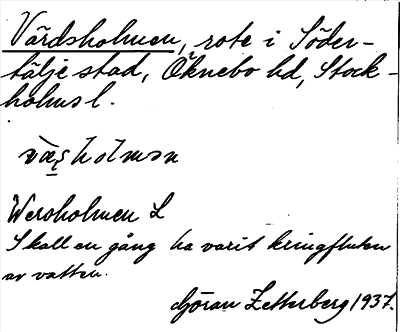 Värdsholmen, rote i Söder-
tälje stad, Öknebo hd, Stock-
holms l.
holmən
Wersholmen L
Skall en gång ha varit kringfluten
av vatten.
Göran Zetterberg 1937.